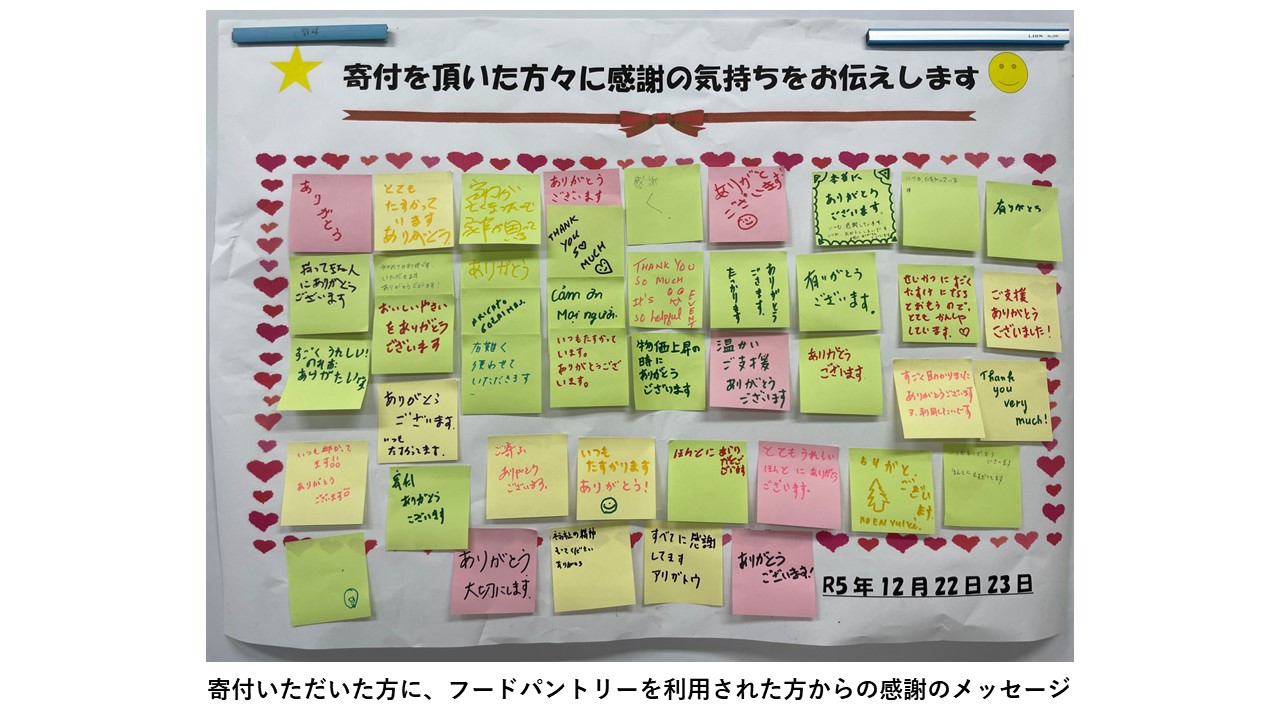 LION
寄付を頂いた方々に感謝の気持ちをお伝えします
ありがとう
とても
たすかって
います
ありがとう
ありがとう
ございます
THANK
YOU
SO
MUCH
感謝
ありがとう
ございます
本当に
ありがとう
ございます
有りがとう
持ってきた人
にありがとう
ございます
おいしいやさい
をありがとう
ございます
ありがとう
ARIGATO
GOZAIMAS.
Cảm ơn
Mọi người.
THANK YOU
SO MUCH
It's
so helpful
EVENT
ありがとう
ござます。
たすかります
有りがとう
ございます。
ご支援
ありがとう
ございました!
すごくうれしい!
ありがたいな
有難く
使わせて
いただきます
いつもたすかって
います。
ありがとうござ
います。
物価上昇の
時に
ありがとう
ございます
温かい
ご支援
ありがとう
ございます
ありがとう
ございます
すごく助かりました
ありがとうございます
又、利用したいです
Thank
you
very
much!
ありがとう
ございます.
いつも
たすかってます.
いつも助かって
ます
ありがとう
ございます
寄付
ありがとう
ございます
ご寄付
ありがとう
ございます。
いつも
たすかります
ありがとう!
ほんとにありがとうございます
とてもうれしい
ほんとにありがとう
ございます.
ありがと.
ございます.
ありがとう
大切にします.
すべてに感謝
してます
アリガトウ
ありがとう
ございます!
R5年12月22日23日
寄付いただいた方に、フードパントリーを利用された方からの感謝のメッセージ